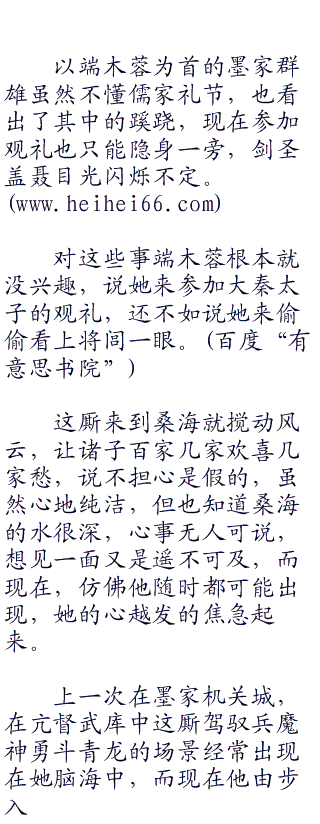 以端木蓉为首的墨家群
雄虽然不懂儒家礼节，也看
出了其中的蹊跷，现在参加
观礼也只能隐身一旁，剑圣
盖聂目光闪烁不定。
(www.heihei66.com)
对这些事端木蓉根本就
没兴趣，说她来参加大秦太
子的观礼，还不如说她来偷
偷看上将闾一眼。(百度“有
意思书院”)
这厮来到桑海就搅动风
云，让诸子百家几家欢喜几
家愁，说不担心是假的，虽
然心地纯洁，但也知道桑海
的水很深，心事无人可说，
想见一面又是遥不可及，而
现在，仿佛他随时都可能出
现，她的心越发的焦急起
来。
上一次在墨家机关城，
在亢督武库中这厮驾驭兵魔
神勇斗青龙的场景经常出现
在她脑海中，而现在他由步
入